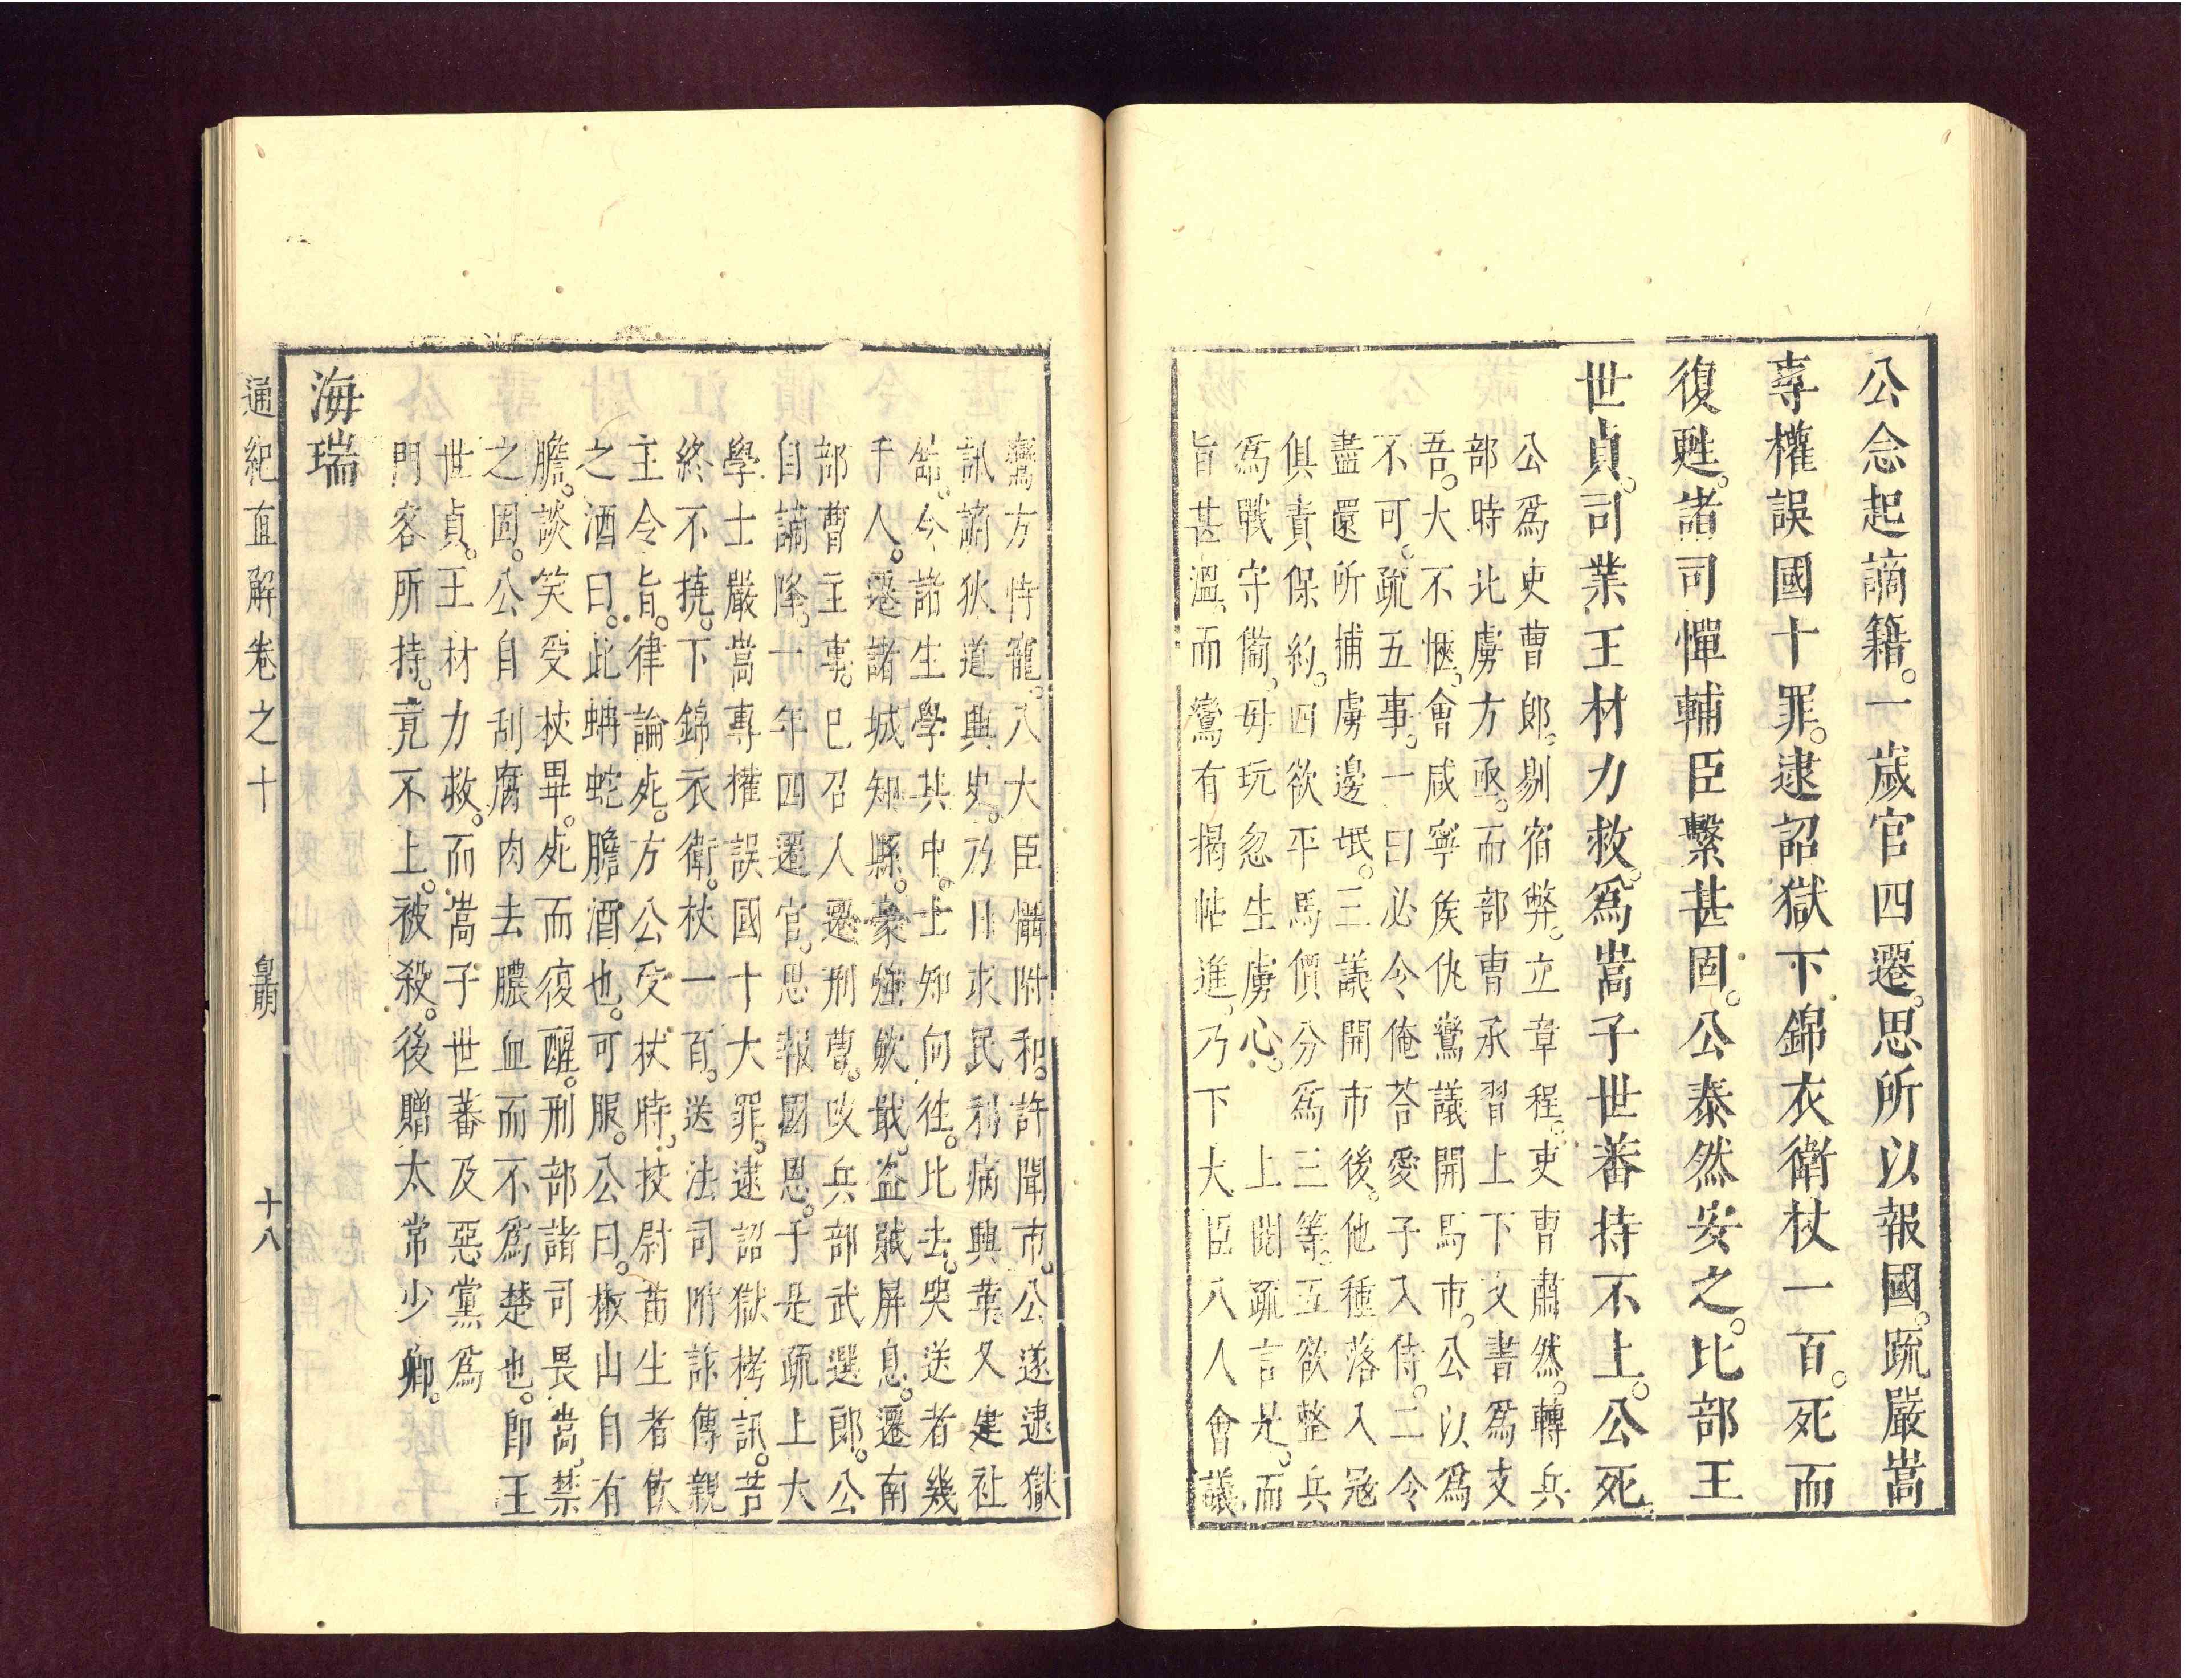 公念起謫籍。一歲官四遷。思所以報國。疏嚴嵩
專權誤國十罪。逮詔獄下錦衣衛杖一百。死而
復甦。諸司憚輔臣繫甚固。公泰然安之。比部王
世貞。司業王材力救。爲嵩子世蕃持不上。公死。
公爲吏曹郎。剔宿弊。立章程。吏曹肅然。轉兵
部時北虜方亟。而部曹承習上下文書爲支
吾。大不愜。會咸寧侯仇鸞議開馬市。公以爲
不可。疏五事。一曰必令俺荅愛子入侍。二令
盡還所捕虜邊氓。三議開市後。他種落入冦
俱責保約。四欲平馬價分爲三等。五欲整兵
爲戰守備。毋玩忽生虜心。上閱疏言是。而
旨甚溫。而鸞有揭帖進。乃下大臣八人會議
鸞方恃寵。八大臣懾附和。許開市。公遂逮獄
訊謫狄道典史。乃日求民利病興革。又建社
館。今諸生學其中。士知向往。比去。哭送者幾
千人。遷諸城知縣。豪強歛戢。盜賊屏息。遷南
部曹主事。已召人遷刑曹。改兵部武選郎。公
自謫降。一年四遷官。思報國恩。于是疏上大
學士嚴嵩專權誤國十大罪。逮詔獄栲訊。苦
終不撓。下錦衣衛。杖一百。送法司附詐傳親
王令旨。律論死。方公受杖時。挍尉苗生者飲
之酒曰。此蚺蛇膽酒也。可服。公曰。椒山自有
膽。談笑受杖畢。死而復醒。刑部諸司畏嵩。禁
之固。公自刮腐肉去膿血而不爲楚也。郎王
世貞。王材力救。而嵩子世蕃及惡黨爲
門客所持。竟不上。被殺。後贈太常少卿。
海瑞
通紀直解卷之十　皇明　十八